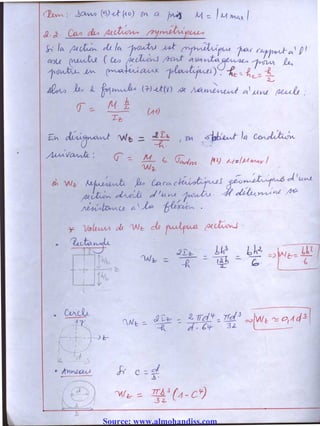 Rem: Dans (9) et (10) on a pris M = |M max|
2.2 Cas des sections symétriques
Si la section de la poutre est symétrique par rapport à l'
axe neutre (ces sections sont avantageuses pour les
poutres en matériaux plastiques): hc = ht = h/2
Alors les 2 formules (7) et (8) se ramènent à une seule:
σ = M h/2 / Iz (11)
En désignant Wz = 2Iz/h, on obtient la condition
suivante: σ = M/Wz ≤ σadm (12) avec M=|Mmax|
où Wz représente les caractéristiques géométriques d'une
section droite d'une poutre. Il détermine sa
résistance à la flexion.
* Valeurs de Wz de quelques sections
• Rectangle
Wz = 2Iz/h = bh³/12 h/2 = bh²/6 => Wz = bh²/6
• Cercle
y
z
Wz = 2Iz/h = 2πd⁴/d.64 = πd³/32 => Wz ≈ 0,1d³
• Anneau
Si c = d/D
Wz = πD³/32 (1-C⁴)
Source: www.almohandiss.com